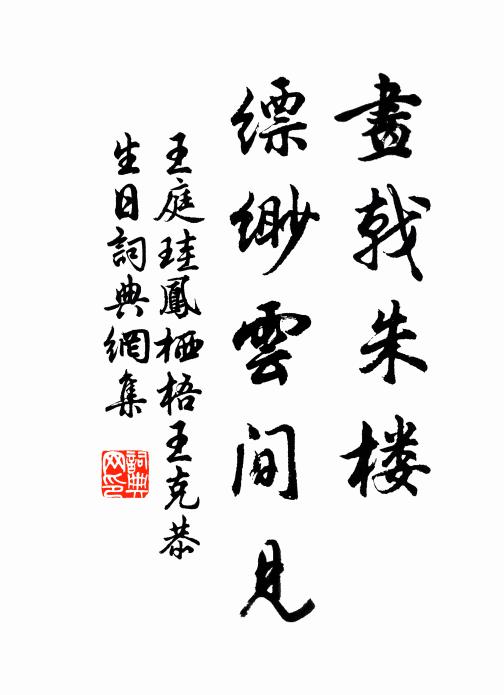 畫戟朱楼
缥缈雲间見
王庭珪鳳栖梧王克恭
生日詞典網集
詞典网印